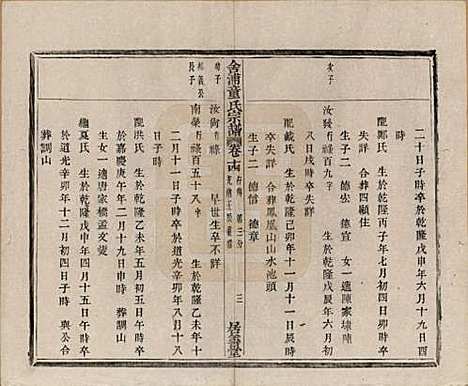 二十日子時卒於乾隆戊申年六月十九日酉
時
配鄭氏 生於乾隆丙子年七月初四日戌時卒
失詳 合葬四顧住
生子二 德宏 德宣 女一適陳家墺陳
次子
汝發 行祿百九 字 生於乾隆戊辰年六月初
八日戌時卒失詳
配戴氏 生於乾隆己卯年十一月十一日戌時
卒失詳 合葬鳳凰山山水池頭
生子二 德信 德章
舍浦童氏宗譜 卷十四
三
居易堂
幼子
汝衡 行祿 字 早世生卒不詳
長子
南榮 行祿百五十八 字 生於乾隆乙未年十
二月十一日子時卒於道光辛卯年八月十八
日子時
配洪氏 生於乾隆乙未年五月初五日子時卒
於嘉慶庚午年二月十九日申時 葬調山
生女一適唐家橋孟文英
繼夏氏 生於乾隆戊申年四月十五日午時卒
於道光辛卯年十二月初四日子時 與公合
葬調山